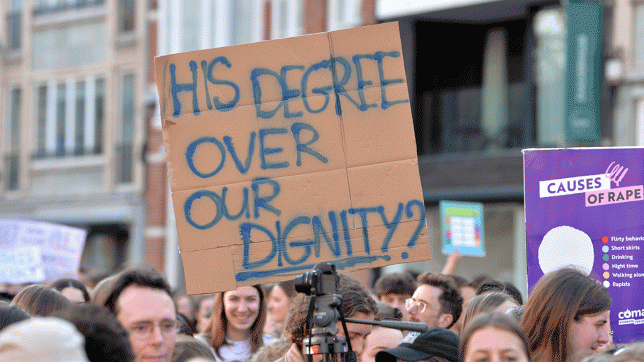 HIS DEGREE
OVER
OUR
DIGNITY?
CAUSES
OF RAPE
Flirty behavio
Short skirts
Drinking
Night time
Walking alone
Rapists
CÓMAC
cóma